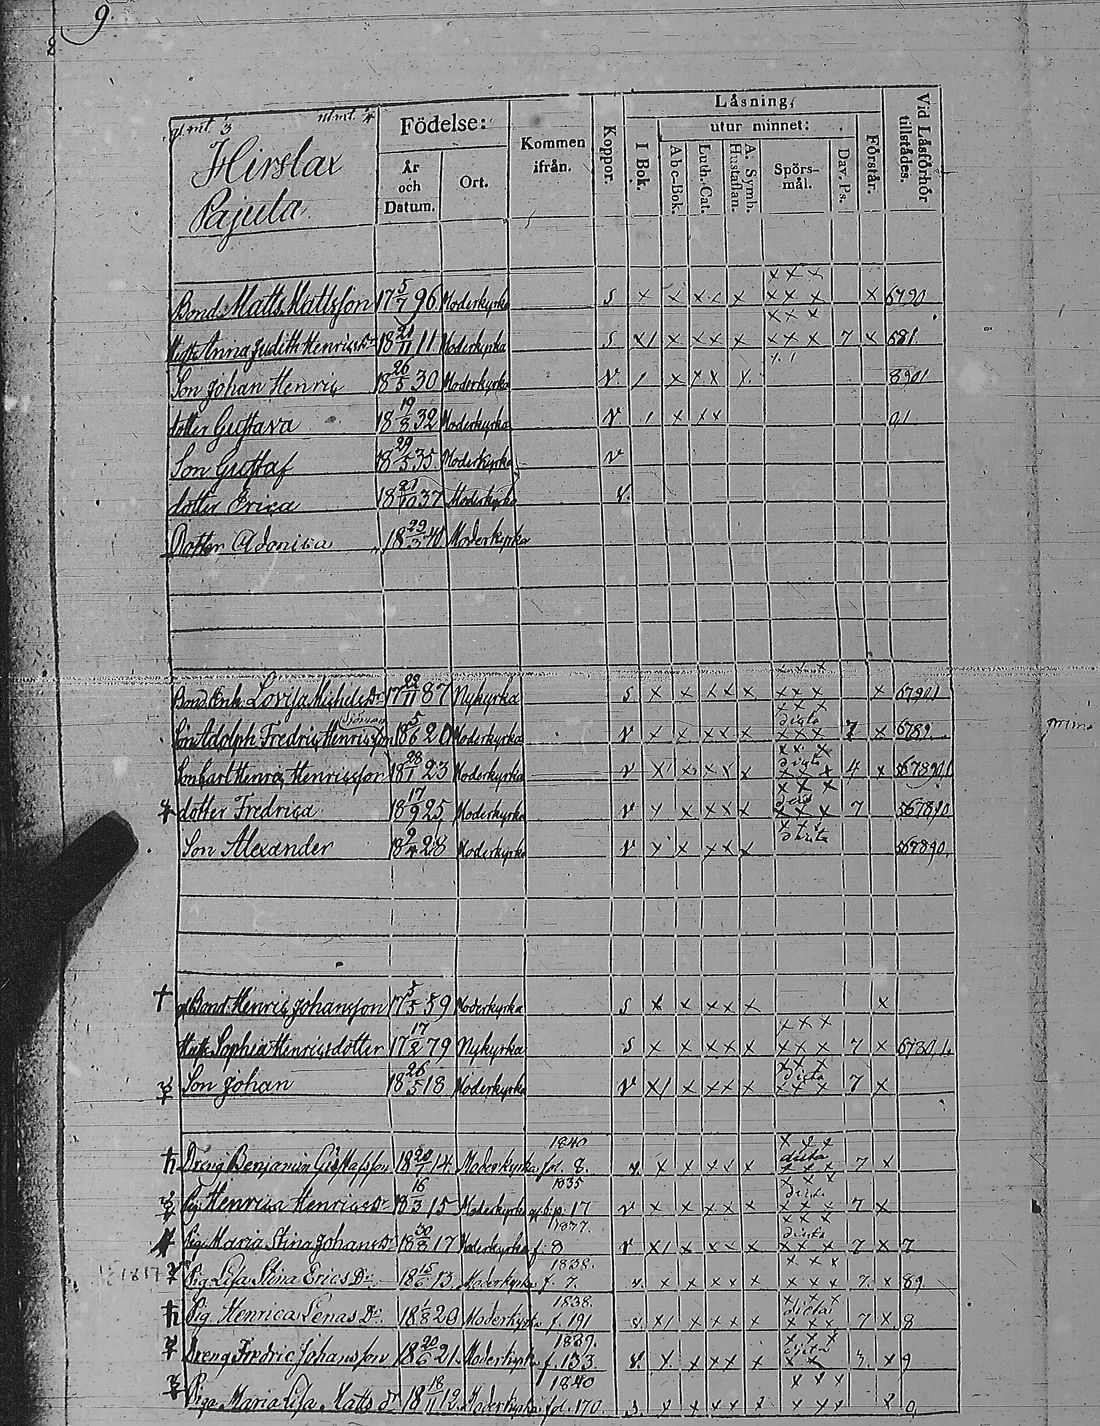 9
8
gl. mt. 3 nt. mt. 4
Hirslax
Pajula
Födelse:
År och Datum.
Ort.
Kommen ifrån.
Koppor.
Läsning,
I Bok.
utur minnet:
A b c-Bok.
Luth. Cat.
Hustaflan.
A. Symb.
Spörs-mål.
Dav. Ps.
Förstår.
Vid Läsförhör tillstädes.
Bond. Matts Mattsson 17 5/7 96 Moderkyrka s x x x x x x x x x 6790
Anna Judith Henricsdr 18 21/11 11 Moderkyrka s x x x x x x x x x 7 x 681
Son Johan Henric 18 26/5 30 Moderkyrka v. x x x x. 8901
dotter Gustava 18 19/8 32 Moderkyrka v. x x x 91
Son Gustaf 18 29/5 35 Moderkyrka v
dotter Erica 18 21/10 37 Moderkyrka v.
Dotter Adonica 18 29/3 40 Moderkyrka
Bond. Enk. Lovisa Michelsdr 17 28/11 87 Nykyrka s x x x x x x x x x x 67901
Son Adolph Fredric Henricsson 18 5/6 20 Moderkyrka v x x x x x x dicta x x x 7 x 6789
Son Carl Henric Henricsson 18 28/1 23 Moderkyrka v x x x x x x dicta x x x 4 x
dotter Fredrica 18 17/9 25 Moderkyrka v x x x x x x x x x 7 567890
Son Alexander 18 2/4 28 Moderkyrka v x x x x x x dicta
† Bond. Henric Johansson 17 5/5 59 Moderkyrka s x x x x x x x
Sophia Henricsdotter 17 17/2 79 Nykyrka s x x x x x x x x x 7 x
Son Johan 18 26/5 18 Moderkyrka v x x x x x x dicta x x x 7 x
Dreng Benjamin Gustafsson 18 20/7 14 Moderkyrka 1840 fol. 8. v. x x x x x x dicta x x x 7 x
Pig. Henrica Henricsdr 18 16/3 15 Moderkyrka 1835 p. 17 v x x x x x x dicta x x x 7 x
Pig. Maria Stina Johansdr 18 30/8 17 Moderkyrka 1837. f. 8 v x x x x x x dicta x x x 7 x 7
Pig Lisa Stina Ericsdr 18 15/6 13 Moderkyrka 1838. f. 7. v. x x x x x x x x x 7. x 89
Pig. Henrica Lenasdr. 18 1/8 20 Moderkyrka 1838. f. 191 v. x x x x x x dicta x x x 7 x 8
Dreng Fredric Johansson 18 20/6 21 Moderkyrka 1839. f. 133. v. x x x x x x dicta x x 7. x 9
Piga Maria Lisa Mattsdr 18 18/11 12 Moderkyrka 1840 fol. 170. s. x x x x x x x x x x 0